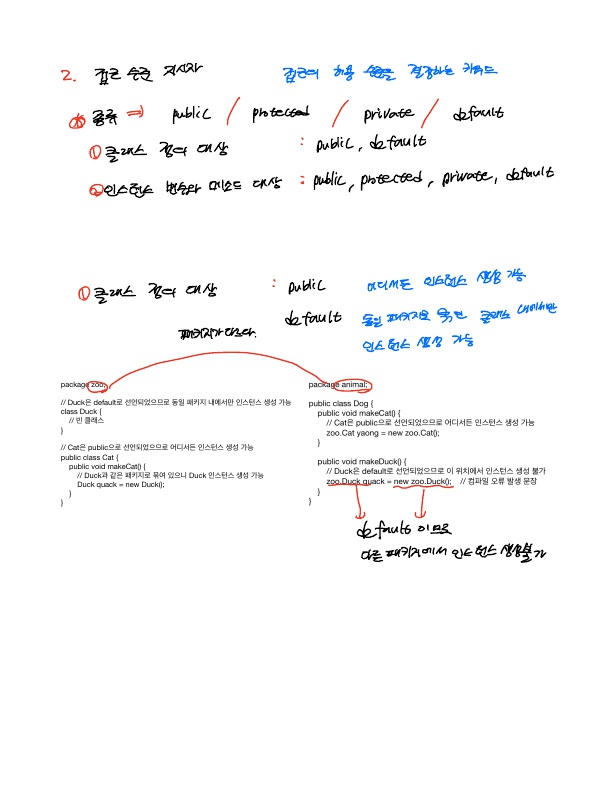 2. 접근 수준 지시자 접근의 허용 수준을 결정하는 키워드
※ 종류 ⇒ public / protected / private / default
① 클래스 정의 대상 : public, default
② 인스턴스 변수와 메소드 대상 : public, protected, private, default
① 클래스 정의 대상 : public 어디서든 인스턴스 생성 가능
default 동일 패키지로 묶인 클래스 내에서만
인스턴스 생성 가능
패키지가 다르다.
package zoo;
// Duck은 default로 선언되었으므로 동일 패키지 내에서만 인스턴스 생성 가능
class Duck {
// 빈 클래스
}
// Cat은 public으로 선언되었으므로 어디서든 인스턴스 생성 가능
public class Cat {
public void makeCat() {
// Duck과 같은 패키지로 묶여 있으니 Duck 인스턴스 생성 가능
Duck quack = new Duck();
}
}
package animal;
public class Dog {
public void makeCat() {
// Cat은 public으로 선언되었으므로 어디서든 인스턴스 생성 가능
zoo.Cat yaong = new zoo.Cat();
}
public void makeDuck() {
// Duck은 default로 선언되었으므로 이 위치에서 인스턴스 생성 불가
zoo.Duck quack = new zoo.Duck(); // 컴파일 오류 발생 문장
}
}
default 이므로
다른 패키지에서 인스턴스 생성불가